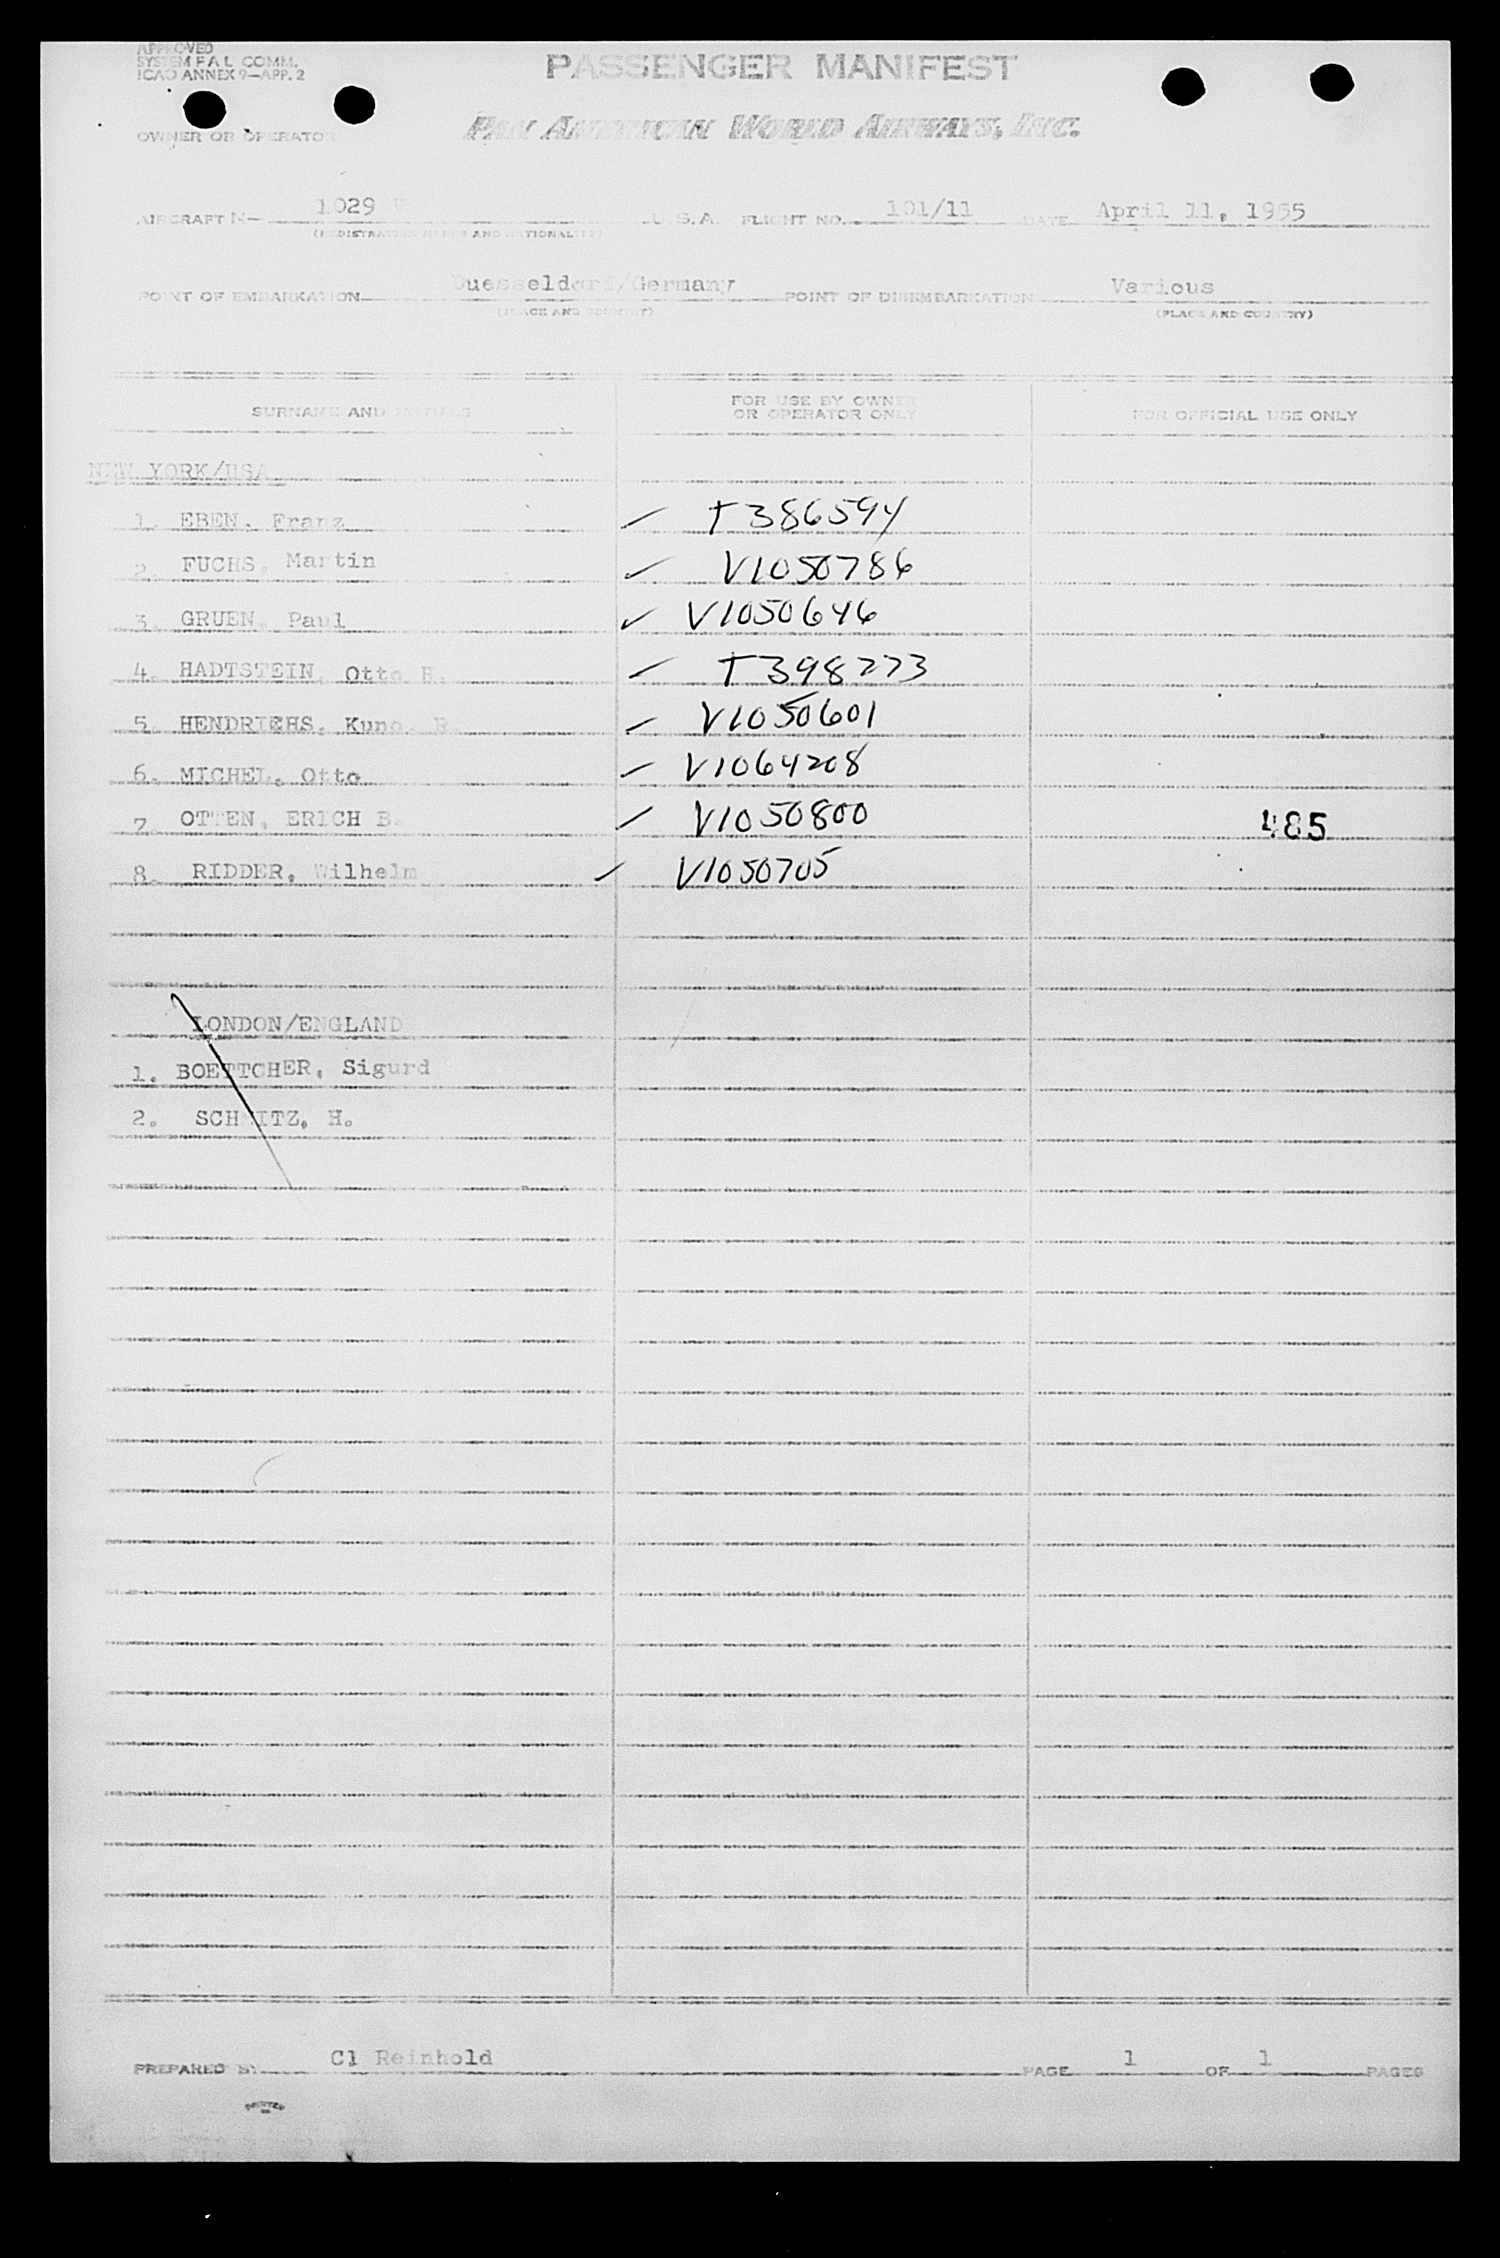 APPROVED
SYSTEM FAL COMM.
ICAO ANNEX 9—APP. 2
PASSENGER MANIFEST
OWNER OR OPERATOR
PAN AMERICAN WORLD AIRWAYS, INC.
AIRCRAFT N— 1029 U.S.A. FLIGHT NO. 101/11 DATE April 11, 1955
(REGISTRATION MARKS AND NATIONALITY)
POINT OF EMBARKATION Duesseldorf/Germany POINT OF DISEMBARKATION Various
(PLACE AND COUNTRY) (PLACE AND COUNTRY)
SURNAME AND INITIALS FOR USE BY OWNER OR OPERATOR ONLY FOR OFFICIAL USE ONLY
NEW YORK/USA
1. EBEN, Franz ✓ T386594
2. FUCHS, Martin ✓ V1050786
3. GRUEN, Paul ✓ V1050646
4. HADTSTEIN, Otto H. ✓ T398273
5. HENDRICHS, Kuno. R. ✓ V1050601
6. MICHEL, Otto ✓ V1064208
7. OTTEN, ERICH B. ✓ V1050800 485
8. RIDDER, Wilhelm ✓ V1050705
LONDON/ENGLAND
1. BOETTCHER, Sigurd
2. SCHMITZ, H.
PREPARED BY Cl Reinhold PAGE 1 OF 1 PAGES